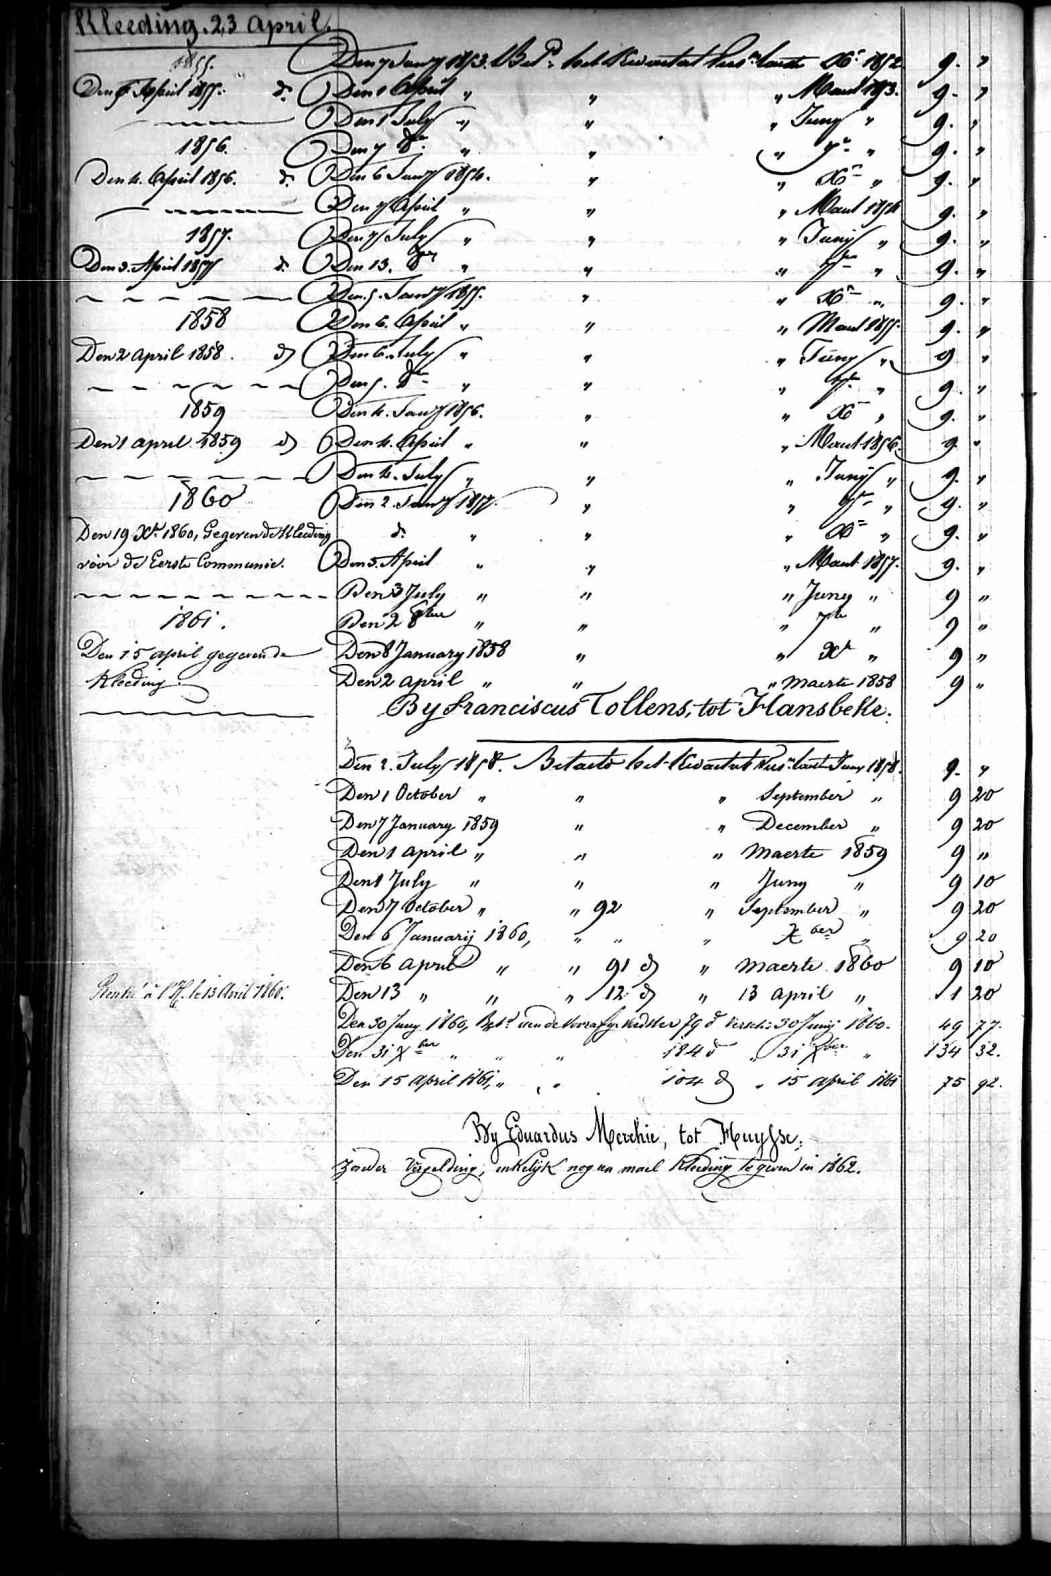 Kleeding. 23 april.
1855.
Den 5 April 1855. d.
1856.
Den 4. April 1856. d.
1857.
Den 3. April 1857 d.
1858
Den 2 april 1858. d
1859
Den 1 april 1859 d
1860
Den 19 Xr 1860, Gegeven de Kleeding
voor de Eerste Communie.
1861.
Den 15 april gegeven de
Kleeding
Den 7 Jany 1853. Bet. het Kwartaal laatste Xr 1852 9. "
Den 1 April " " " Maart 1853. 9. "
Den 1 July " " " Juny " 9. "
Den 7 8r " " " 7r " 9. "
Den 6 Jany 1854. " " Xr " 9. "
Den 7 April " " " Maart 1854 9. "
Den 7 July " " " Juny " 9. "
Den 13. 8er " " " 7r " 9. "
Den 5. Jany 1855. " " Xr " 9. "
Den 6. April " " " Maart 1855. 9. "
Den 6. July " " " Juny " 9 "
Den 5. 8r " " " 7r " 9. "
Den 4. Jany 1856. " " Xr " 9. "
Den 4. April " " " Maart 1856. 9. "
Den 4. July " " " Juny " 9. "
Den 2. Jany 1857. " " 7r " 9. "
d. " " " Xr " 9. "
Den 3. April " " " Maart 1857. 9. "
Den 3 July " " " Juny " 9 "
Den 2 8ber " " " 7br " 9 "
Den 8 January 1858 " " Xr " 9 "
Den 2 april " " " maerte 1858 9 "
By Franciscus Tollens, tot Hansbeke.
Den 2. July 1858. Betaeld het Kwartaal Juny 1858. 9. "
Den 1 October " " " September " 9 20
Den 7 January 1859 " " December " 9 20
Den 1 april " " " maerte 1859 9 "
Den 1 July " " " Juny " 9 10
Den 7 October " " 92 " September " 9 20
Den 6 Januarij 1860, " " " Xber " 9 20
Den 6 april " " 91 d " maerte 1860 9 10
à l'H. le 13 Avril 1860.
Den 13 " " " 12 d " 13 april " 1 20
Den 30 Juny 1860, Bet. aen de 79 d 30 Junij 1860. 49 77.
Den 31 Xber " " " 184 d " 31 Xber " 134 32.
Den 15 april 1861, " " 104 d " 15 april 1861 75 92.
By Eduardus Merchie, tot Huysse,
zonder vergelding, enkelijk nog een mael Kleeding te geven in 1862.